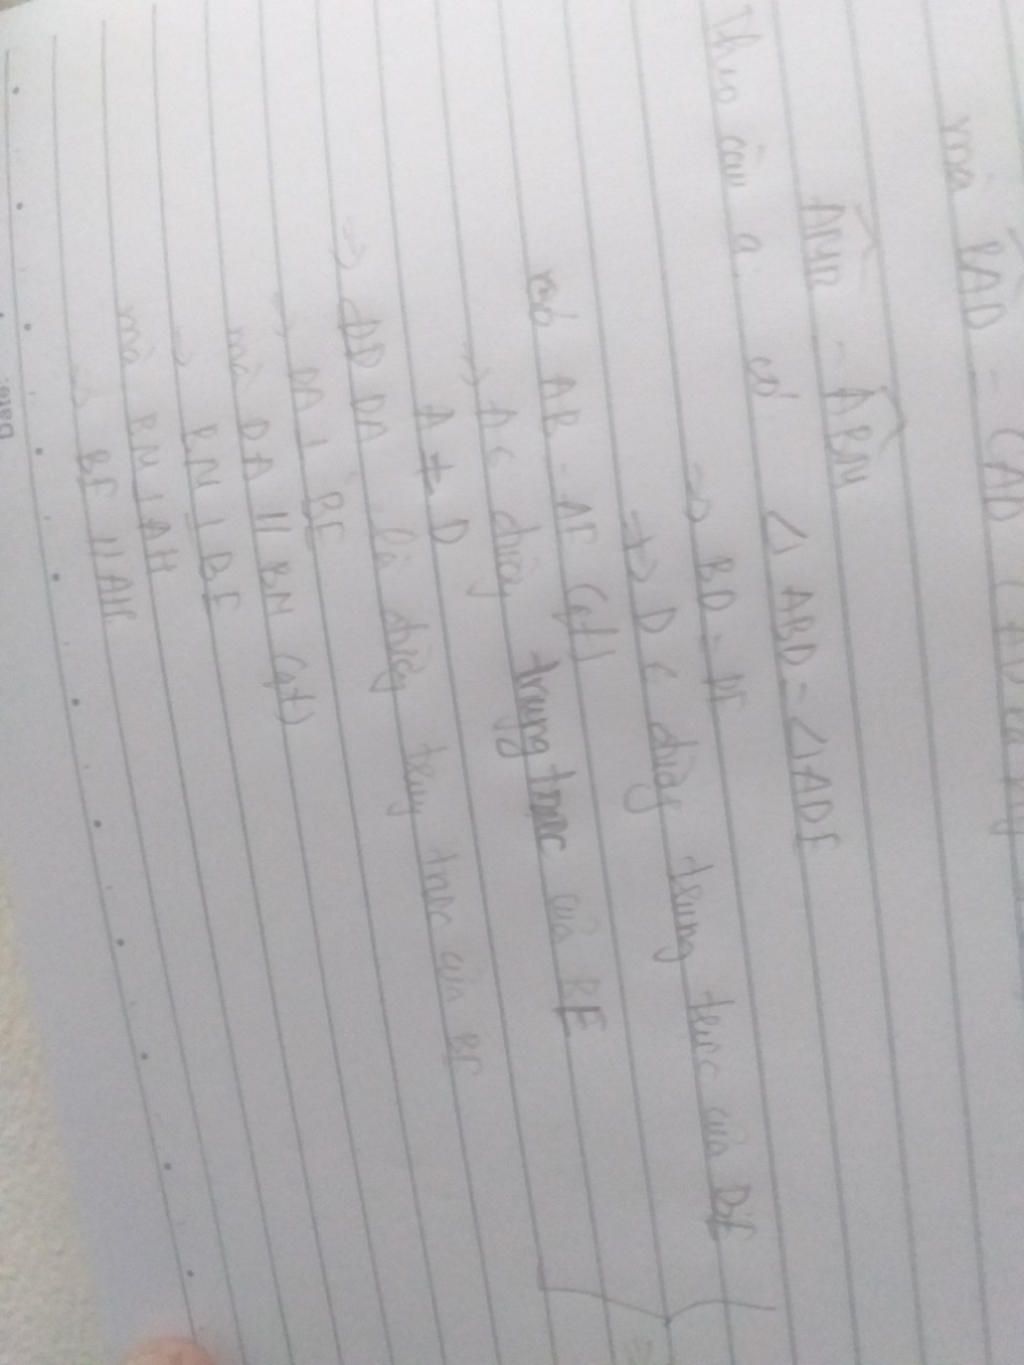 mà BAD = CAD (AD là
ANB = ABN
Theo câu a có △ ABD = △ ADF
=> BD = DF
=> D ∈ đường trung trực của BF
có AB = AF (gt)
=> A ∈ đường trung trực của BF
A ≠ D
=> DA là đường trung trực của BF
=> DA ⊥ BF
mà DA // BN (gt)
=> BN ⊥ BF
mà BN ⊥ AH
=> BF // AH
Date: